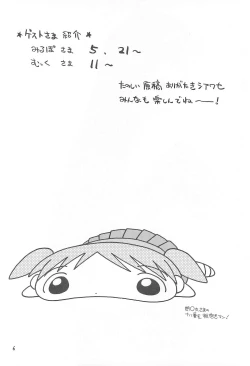 *ゲストさま 紹介*
みるぽ さま 5、21〜
むっく さま 11〜
たのしい 原稿 ありがたきシアワセ
みんなも 楽しんでね〜〜!
6